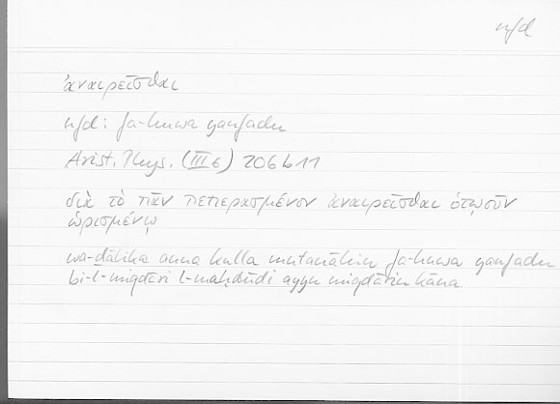 nfd
ἀναιρεῖσθαι
nfd: fa-huwa yanfadu
Arist. Phys. (III 6) 206 b 11
διὰ τὸ πᾶν πεπερασμένον ἀναιρεῖσθαι ὁτῳοῦν
ὡρισμένῳ
wa-ḏālika anna kulla mutanāhin fa-huwa yanfadu
bi-l-miqdāri l-maḥdūdi ayyu miqdārin kāna